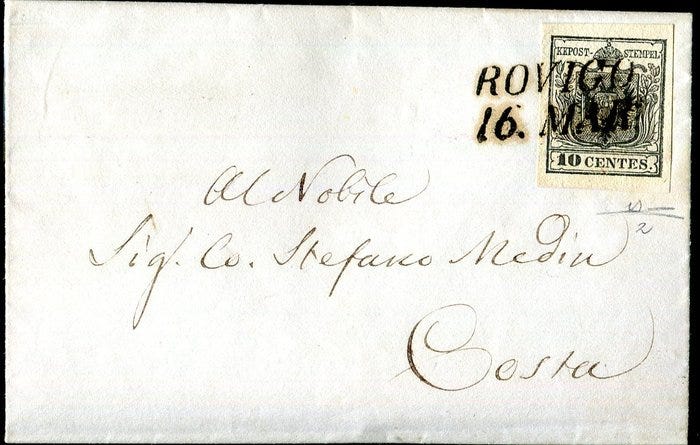 KKPOST-STEMPEL
ROVIGO
16. MAR
10 CENTES.
Al Nobile
Sig.r Co. Stefano Medin
Costa
2